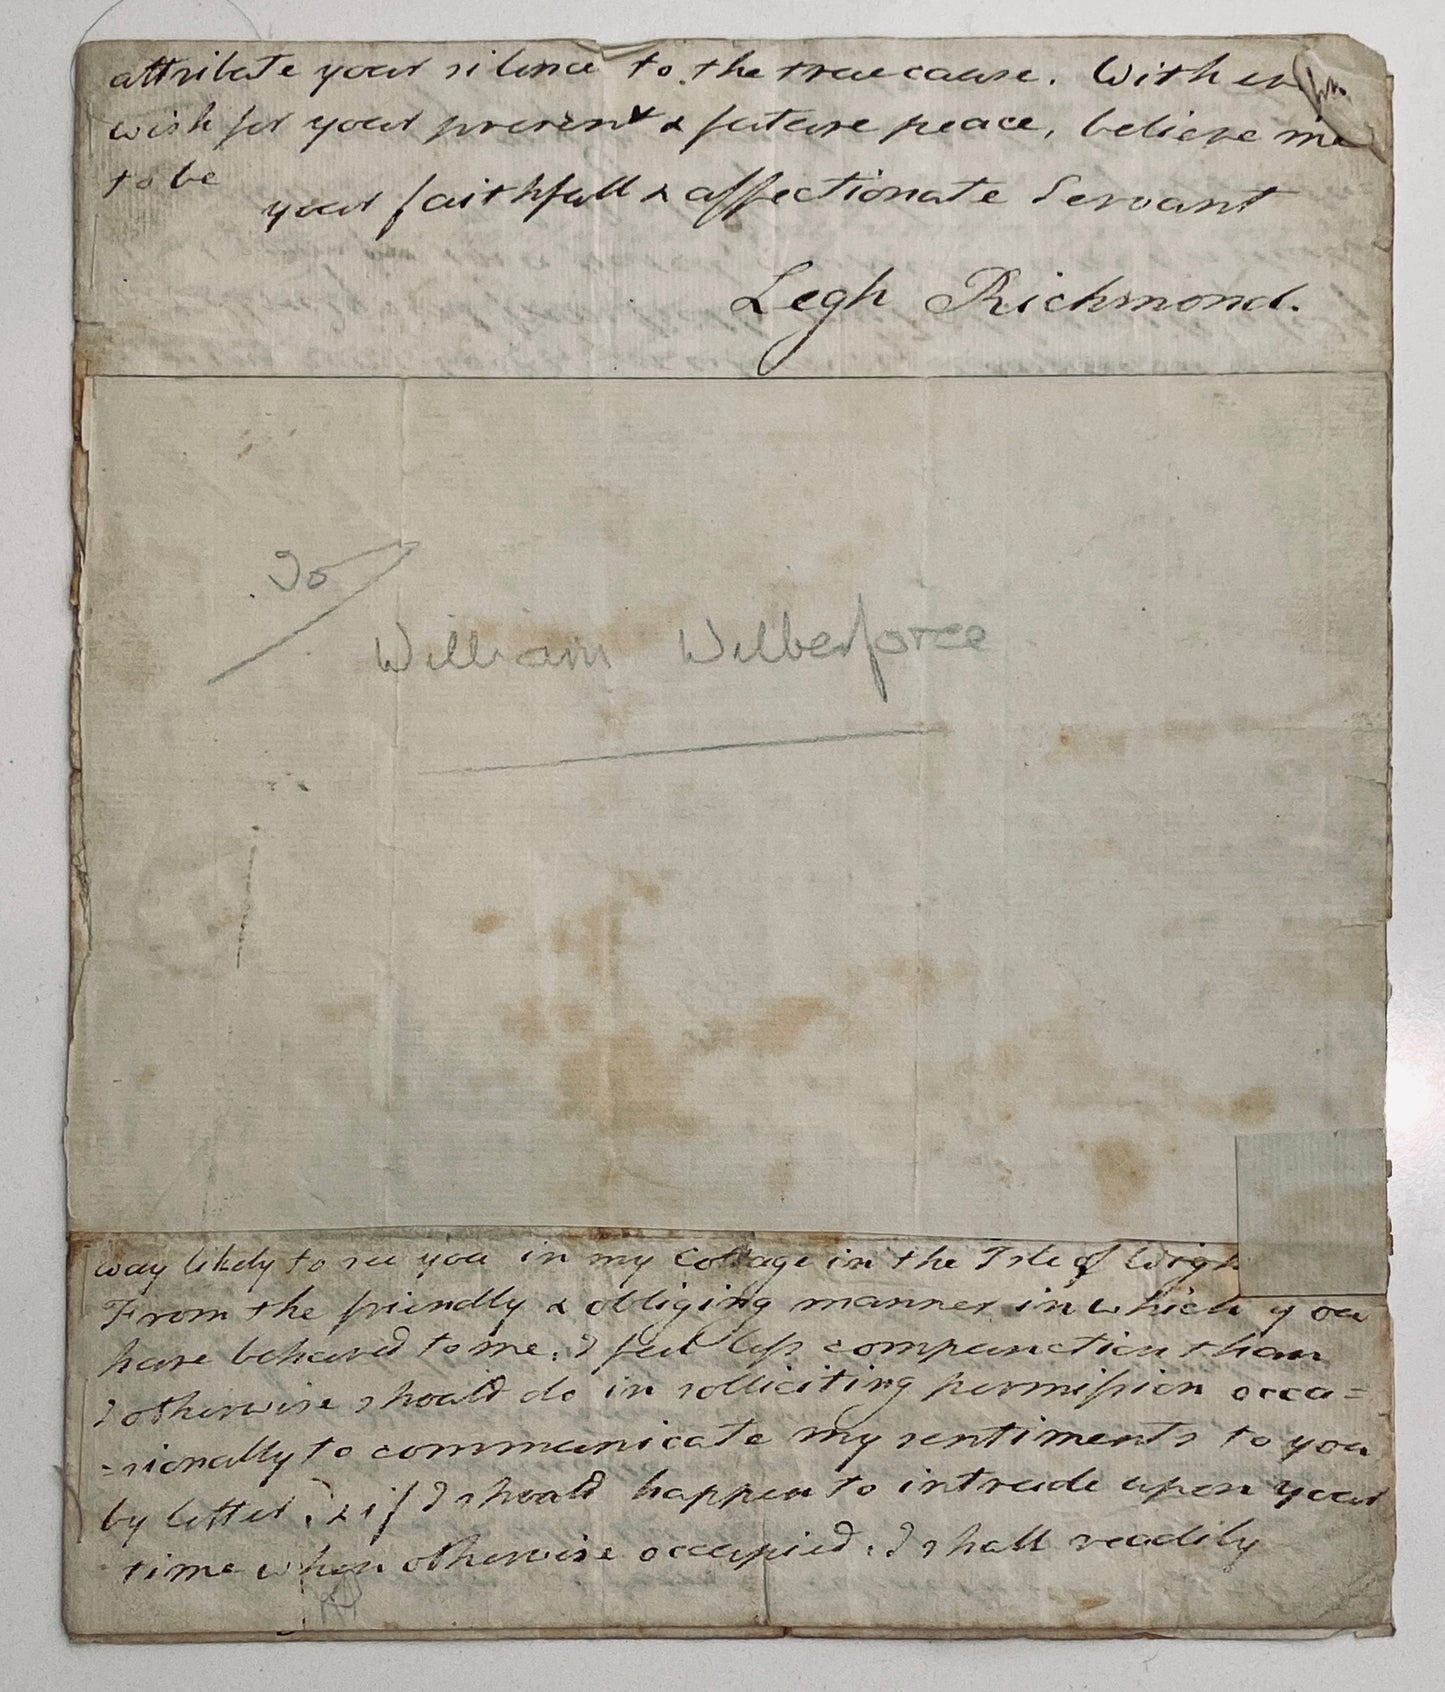 attribute your silence to the true cause. With every
wish for your present & future peace, believe me
to be
your faithfull & affectionate Servant
Legh Richmond.
To
William Wilberforce
way likely to see you in my Cottage in the Isle of Wigh
From the friendly & obliging manner in which you
have behaved to me, I feel less compunction than
I otherwise should do in solliciting permission occa=
=sionally to communicate my sentiments to you
by letter, & if I should happen to intrude upon your
time when otherwise occupied, I shall readily